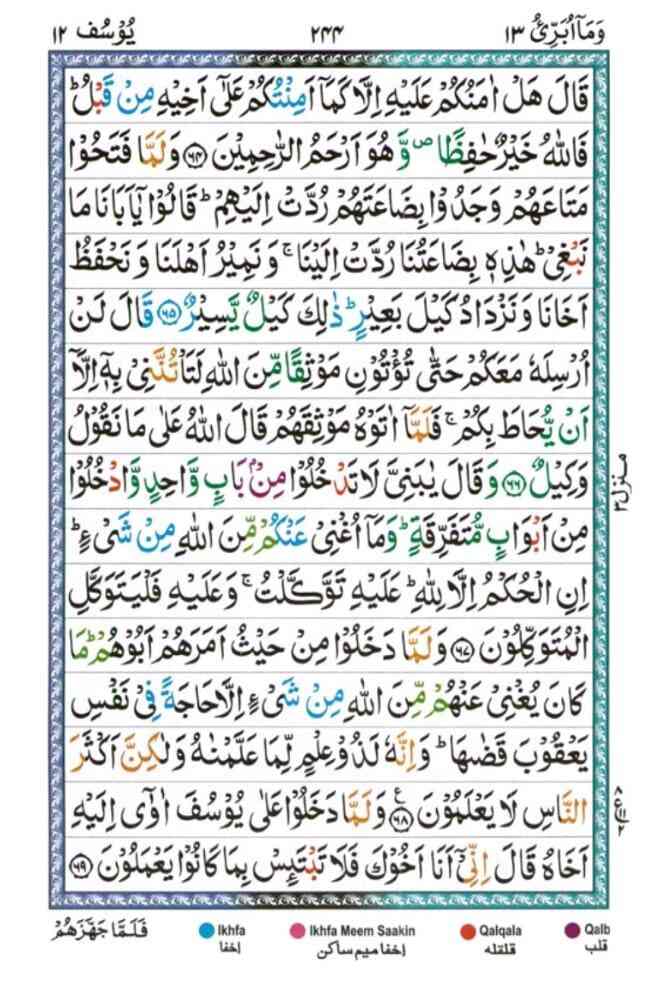 وَمَاۤ اُبَرِّئُ ١٣ ٢٤٤ يُوْسُف ١٢
قَالَ هَلْ اٰمَنُكُمْ عَلَيْهِ اِلَّا كَمَاۤ اَمِنْتُكُمْ عَلٰۤى اَخِيْهِ مِنْ قَبْلُ ؕ
فَاللّٰهُ خَيْرٌ حٰفِظًا ۪ وَّ هُوَ اَرْحَمُ الرّٰحِمِيْنَ ﴿۶۴﴾ وَ لَمَّا فَتَحُوْا
مَتَاعَهُمْ وَجَدُوْا بِضَاعَتَهُمْ رُدَّتْ اِلَيْهِمْ ؕ قَالُوْا يٰۤاَبَانَا مَا
نَبْغِىْ ؕ هٰذِهٖ بِضَاعَتُنَا رُدَّتْ اِلَيْنَا ۚ وَ نَمِيْرُ اَهْلَنَا وَ نَحْفَظُ
اَخَانَا وَ نَزْدَادُ كَيْلَ بَعِيْرٍ ؕ ذٰلِكَ كَيْلٌ يَّسِيْرٌ ﴿۶۵﴾ قَالَ لَنْ
اُرْسِلَهٗ مَعَكُمْ حَتّٰى تُؤْتُوْنِ مَوْثِقًا مِّنَ اللّٰهِ لَتَاْتُنَّنِىْ بِهٖۤ اِلَّاۤ
اَنْ يُّحَاطَ بِكُمْ ۚ فَلَمَّاۤ اٰتَوْهُ مَوْثِقَهُمْ قَالَ اللّٰهُ عَلٰى مَا نَقُوْلُ
وَكِيْلٌ ﴿۶۶﴾ وَ قَالَ يٰبَنِىَّ لَا تَدْخُلُوْا مِنْۢ بَابٍ وَّاحِدٍ وَّادْخُلُوْا
مِنْ اَبْوَابٍ مُّتَفَرِّقَةٍ ؕ وَمَاۤ اُغْنِىْ عَنْكُمْ مِّنَ اللّٰهِ مِنْ شَىْءٍ ؕ
اِنِ الْحُكْمُ اِلَّا لِلّٰهِ ؕ عَلَيْهِ تَوَكَّلْتُ ۚ وَعَلَيْهِ فَلْيَتَوَكَّلِ
الْمُتَوَكِّلُوْنَ ﴿۶۷﴾ وَلَمَّا دَخَلُوْا مِنْ حَيْثُ اَمَرَهُمْ اَبُوْهُمْ ؕ مَا
كَانَ يُغْنِىْ عَنْهُمْ مِّنَ اللّٰهِ مِنْ شَىْءٍ اِلَّا حَاجَةً فِىْ نَفْسِ
يَعْقُوْبَ قَضٰٮهَا ؕ وَاِنَّهٗ لَذُوْ عِلْمٍ لِّمَا عَلَّمْنٰهُ وَلٰكِنَّ اَكْثَرَ
النَّاسِ لَا يَعْلَمُوْنَ ﴿۶۸﴾ ع وَلَمَّا دَخَلُوْا عَلٰى يُوْسُفَ اٰوٰٓى اِلَيْهِ
اَخَاهُ قَالَ اِنِّىْۤ اَنَا اَخُوْكَ فَلَا تَبْتَئِسْ بِمَا كَانُوْا يَعْمَلُوْنَ ﴿۶۹﴾
منزل ٣
فَلَمَّا جَهَّزَهُمْ
Ikhfa
اخفا
Ikhfa Meem Saakin
اخفا ميم ساكن
Qalqala
قلقله
Qalb
قلب